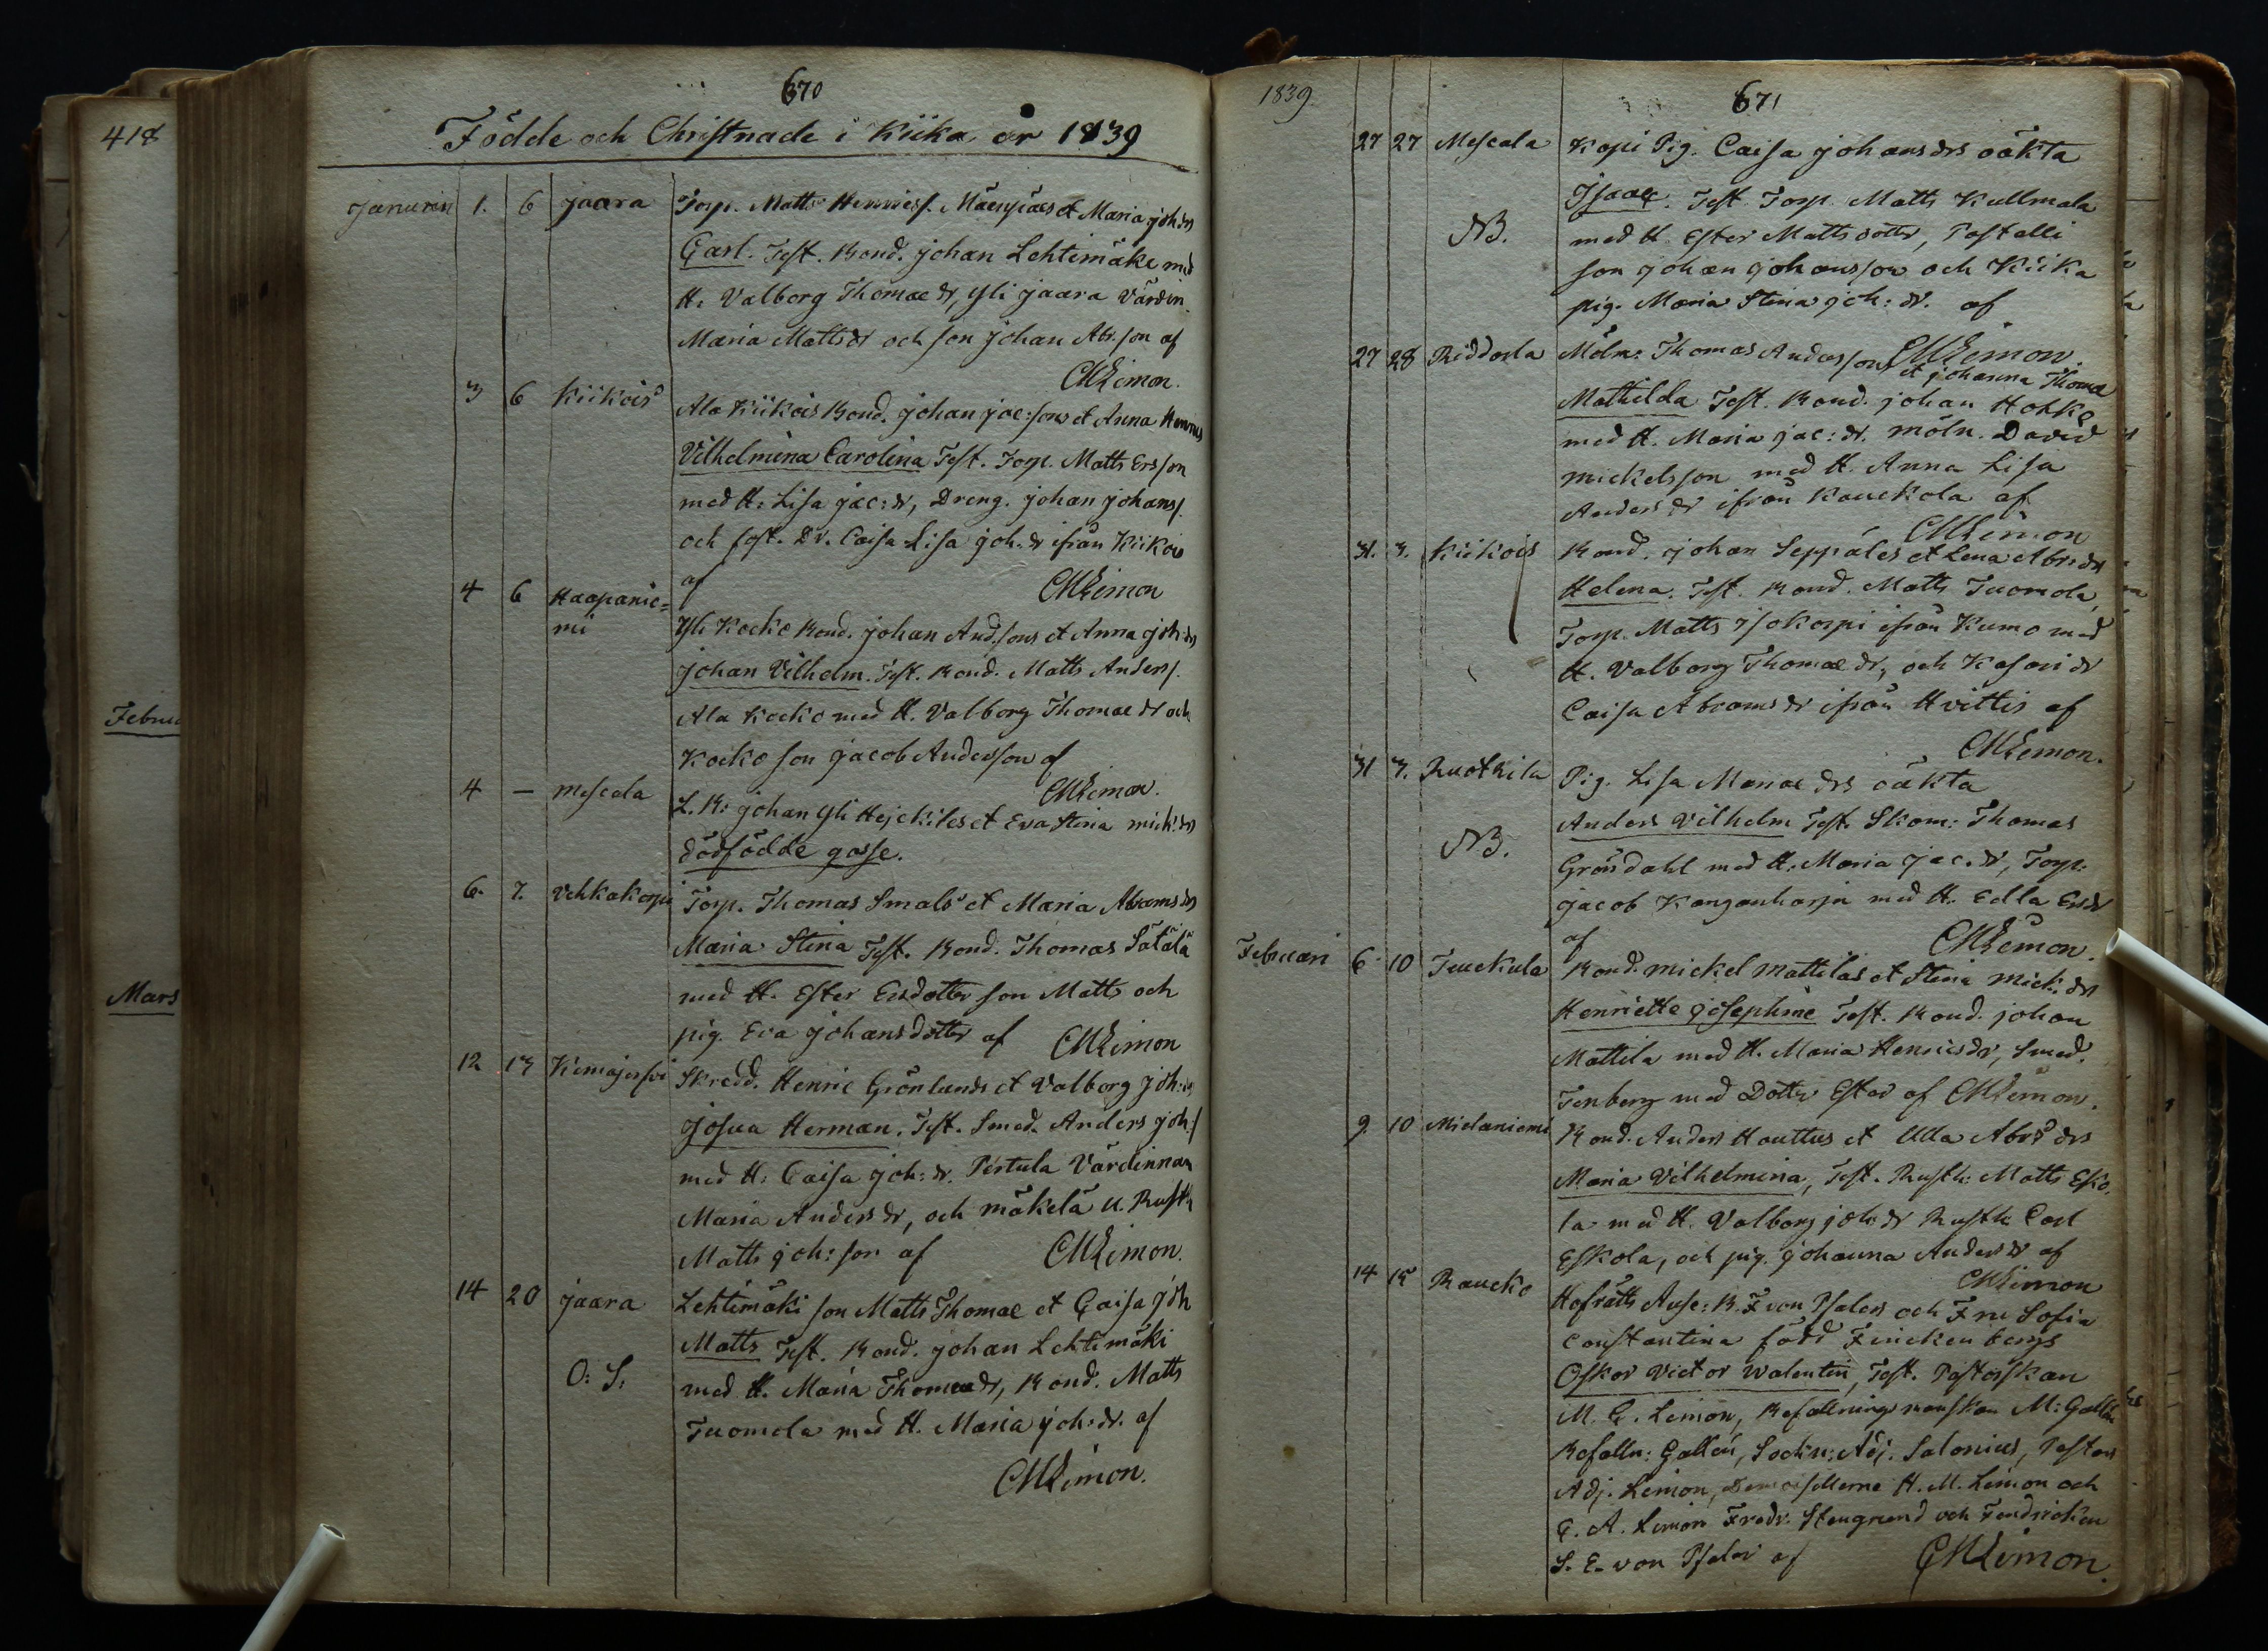 418
Februa
Mars
670
Födde och Christnade i Kiika år 1839
Januarii 1. 6 Jaara Torp. Matts Henrics. Mäenpäas et Maria Joh:drs
Carl. Test. Bond. Johan Lehtimäki med
H. Valborg Thomae dr, Yli Jaara Värdin
Maria Matts dr och son Johan Abr.son af
CMLimon.
3 6 Kiikois Ala Kiikois Bond. Johan Jac:sons et Anna Henrics
Vilhelmina Carolina Test. Torp. Matts Ersson
med H: Lisa Jac: dr, Dreng. Johan Johans.
och fost. Dr. Caisa Lisa Joh. dr ifrån Kiikois
af CMLimon
4 6 Haapanie=
mi Yli Kocko Bond. Johan And.sons et Anna Joh:drs
Johan Vilhelm. Test. Bond. Matts Anders.
Ala Kocko med H. Valborg Thomae dr och
Kocko son Jacob Andersson af
CMLimon.
4 — Mescala L. B: Johan Yli Hejckiles et Eva Stina Mich:drs
dödfödde gosse.
6. 7. Vehkakorpi Torp. Thomas Smals et Maria Abrams drs
Maria Stina Test. Bond. Thomas Sätälä
med H. Ester Ersdotter son Matts och
pig. Eva Johansdotter af CMLimon
12 13 Kimajersvi Skredd. Henric Grönlunds et Valborg Joh:drs
Josua Herman. Test. Smed. Anders Joh:s
med H: Caisa Joh: dr. Pertula Värdinnan
Maria Anders dr, och Mäkelä u. Rusth
Matts Joh: son af CMLimon.
14 20 Jaara Lehtimäki son Matts Thomae et Caisa Joh
Matts Test. Bond. Johan Lehtimäki
O: S. med H. Maria Thomae dr, Bond. Matts
Tuomola med H. Maria Joh: dr. af
CMLimon.
1839 671
27 27 Mescala Kopi Pig. Caisa Johans drs oäkta
Isaac. Test. Torp. Matts Kullmala
NB. med H. Ester Matts dotter, Pastelli
son Johan Johansson och Kiika
pig. Maria Stina Joh: dr. af
CMLimon.
27 28 Riddarla Möln. Thomas Anderssons et Johanna Thomae
Mathilda Test. Bond. Johan Hohko
med H. Maria Jac: dr. möln. David
Mickelsson med H. Anna Lisa
Anders dr ifrån Kauckola af
CMLimon
31. 3. Kiikois Bond. Johan Seppäles et Lena Abr: drs
Helena. Test. Bond. Matts Tuomola,
Torp. Matts Isokorpi ifrån Kumo med
H. Valborg Thomae dr, och
Caisa Abrams dr ifrån Hvittis af
CMLimon.
31 3. Ruotsila Pig. Lisa drs oäkta
Anders Vilhelm Test. Skom: Thomas
NB. Gröndahl med H. Maria Jac: dr, Torp.
Jacob Kanganharju med H. Edla Ersdr
af CMLimon.
Februari 6. 10 Teuckula Bond. Mickel Mattilas et Stina Mich: drs
Henriette Josephine Test. Bond. Johan
Mattila med H. Maria Henricsdr, Smed.
Tenberg med Dotter Ester af CMLimon.
9 10 Mielaniemi Bond. Anders Houttus et Ulla Abr: drs
Maria Vilhelmina, Test. Rusth: Matts Esko,
la med H. Valborg Joh: dr Rusth Carl
Eskola, och pig. Johanna Anders dr af
CMLimon
14 15 Raucko Hofrätts Ausc: B. F von Pfaler och Fru Sofia
Constantina född Finckenbergs
Oskar Victor Walentin, Test. Pastorskan
M. C. Limon, Befallningsmanskan M: Gallén
Befalln: Gallén, Sockn: Adj. Salonius, Pastors
Adj. Limon, Demoisellerne H. M. Limon och
C. A. Limon Fredr. Stengrund och
S. E. von Pfaler af CMLimon.